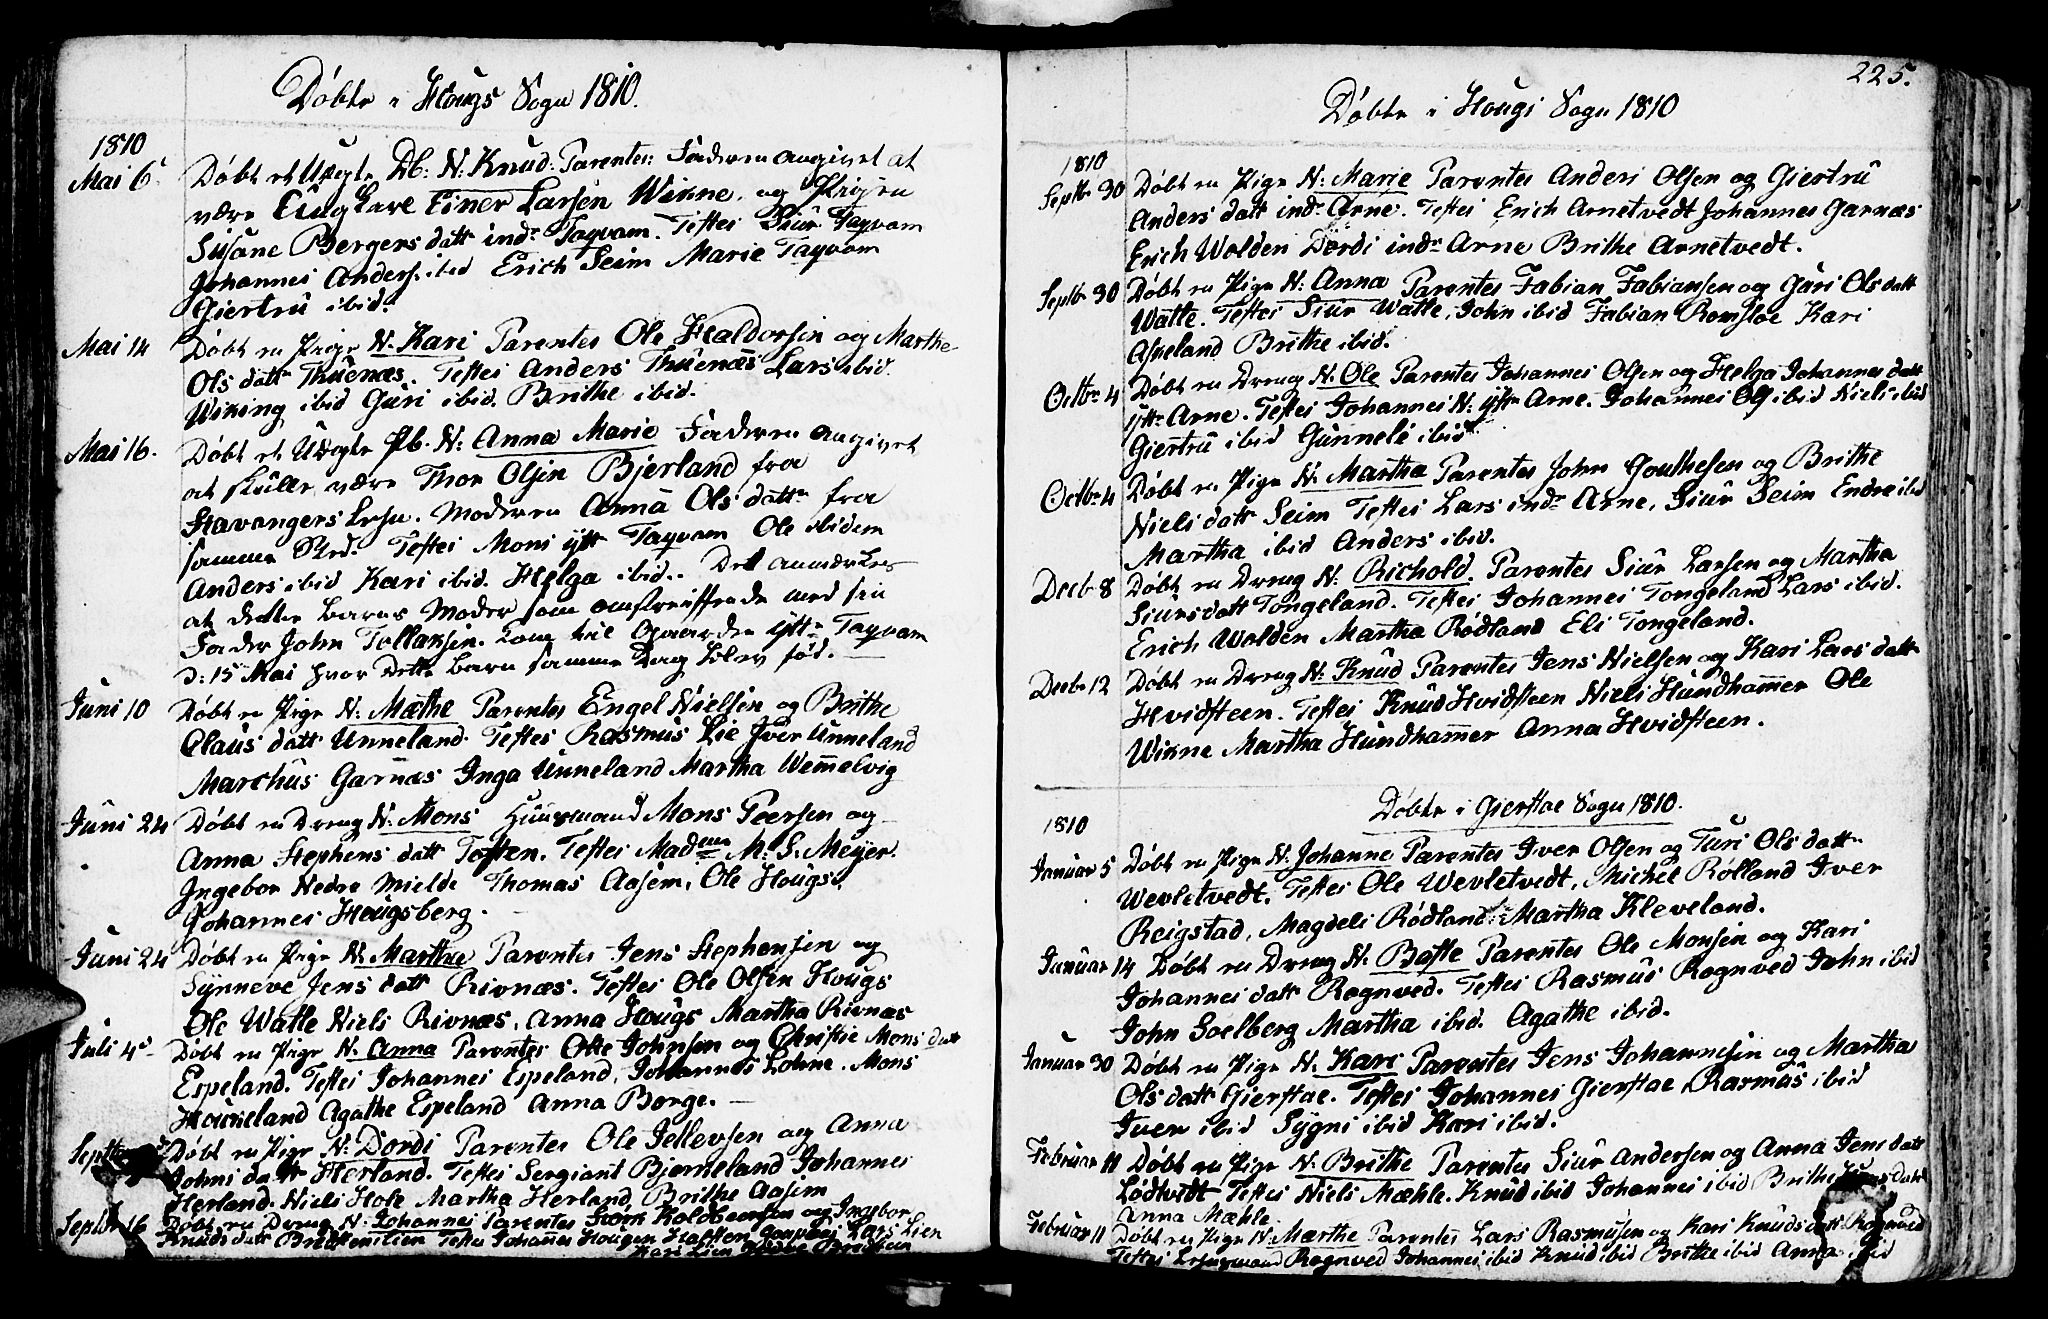 Døbte i Hougs Sogn 1810.
1810
Mai 6. Døbt et Uægte Db. N: Knud: Parentes: Faderen angivet at
være Ungkarl Einer Larsen Wikne, og Pigen
Susane Bergers datt indr Tagvam. Testes Siur Tagvam
Johannes Anders. ibid Erich Seim Marie Tagvam
Giertru ibid.
Mai 14 Døbt en Pige N. Kari Parentes Ole Haldorsen og Marthe
Ols datr Thuenæs. Testes Anders Thuenæs Lars ibid.
Wiking ibid Guri ibid. Brithe ibid.
Mai 16. Døbt et Uægte Pb. N: Anna Marie Faderen angivet
at skulle være Thor Olsen Bjerland fra
Stavangers Lehn. Moderen Anna Ols datr fra
samme Sted. Testes Mons ytt Tagvam Ole ibidem
Anders ibid Kari ibid. Helga ibid. Det anmærkes
at dette Barns Moder som omstreiffende med sin
Fader John Tollaksen. Kom til Gaarden yttr Tagvam
D: 15 Mai hvor dette Barn samme Dag blev fød.
Juni 10 Døbt en Pige N: Mæthe Parentes Engel Nielsen og Brithe
Olaus datt Unneland. Testes Rasmus Lie Iver Unneland
Marchus Garnæs Inga Unneland Martha Wemmelvig
Juni 24 Døbt en Dreng N: Mons Huusmand Mons Peersen og
Anna Stephens datt Toften. Testes Madme M: S. Meyer.
Ingebor Nedre Mielde Thomas Aasem, Ole Hougs.
Johannes Hougsberg.
Juni 24 Døbt en Pige N: Marthe Parentes Jens Stephensen og
Synneve Jens datt Rivnæs. Testes Ole Olsen Hougs
Ole Watle Niels Rivnæs, Anna Hougs Martha Rivnæs
Juli 4. Døbt en Pige N. Anna Parentes Olle Johnsen og Christie Mons datt
Espeland. Testes Johannes Espeland, Johannes Lohne. Mons
Houneland Agathe Espeland Anna Borge.
Septbr Døbt en Pige N: Dordi Parentes Ole Jellevsen og Anna
Johns datr Herland. Testes Sergiant Bjørneland Johannes
Herland. Niels Hole Martha Herland Brithe Aasem
Septbr 16 Døbt en Dreng N. Johannes Parentes Størk Koldbensen og Ingebor
Knuds datt Testes Johannes Hougen Lars Lien
Kari Lien
225.
Døbte i Hougs Sogn 1810
1810
Septbr 30 Døbt en Pige N: Marie Parentes Anders Olsen og Giertru
Anders datt indr Arne. Testes Erich Arnetvedt Johannes Garnæs
Erich Wolden Dordi indr Arne Brithe Arnetvedt.
Septbr 30 Døbt en Pige N: Anna Parentes Fabian Fabiansen og Guri Ols datt
Watle. Testes Siur Watle, John ibid Fabian Romsloe Kari
Asneland Brithe ibid.
Octbr 4 Døbt en Dreng N. Ole Parentes Johannes Olsen og Helga Johannes datt
yttr Arne. Testes Johannes N: yttr Arne. Johannes Ols ibid Niels ibid
Giertru ibid Gunnele ibid.
Octbr 4 Døbt en Pige N: Martha Parentes John Gouthesen og Brithe
Niels datt Seim Testes Lars indr Arne, Siur Seim Endre ibid
Martha ibid Anders ibid.
Decb. 8 Døbt en Dreng N: Richold. Parentes Siur Larsen og Martha
Siursdatt Tongeland. Testes Johannes Tongeland Lars ibid.
Erich Wolden Martha Rødland Eli Tongeland.
Decbr 12 Døbt en Dreng N: Knud Parentes Jens Nielsen og Kari Lars datt
Hvidsteen. Testes Knud Hvidsteen Niels Hundhammer Ole
Wikne Martha Hundhammer Anna Hvidsteen.
Døbte i Gierstae Sogn 1810.
1810
Januar 5 Døbt en Pige N. Johanne Parentes Iver Olsen og Turi Ols datr
Wevletvedt. Testes Ole Wevletvedt, Michel Rølland Iver
Reigstad, Magdeli Rødland. Martha Kleveland.
Januar 14 Døbt en Dreng N: Botte Parentes Ole Monsen og Kari
Johannes datr Rognved. Testes Rasmus Rognved John ibid
John Soelberg Martha ibid. Agathe ibid.
Januar 30 Døbt en Pige N: Kari Parentes Jens Johannesen og Martha
Ols datt Gierstae. Testes Johannes Gierstae Rasmus ibid
Iver ibid Sygni ibid Kari ibid.
Februar 11 Døbt en Pige N: Brithe Parentes Siur Andersen og Anna Jens datt
Lødtvedt Testes Niels Mæhle. Knud ibid Johannes ibid Brithe
Anna Mæhle
Februar 11 Døbt en Pige N: Mærthe Parentes Lars Rasmusen og Kari Knuds datt Rognved
Testes Rognved Johannes ibid Knud ibid Brithe ibid Anna ibid